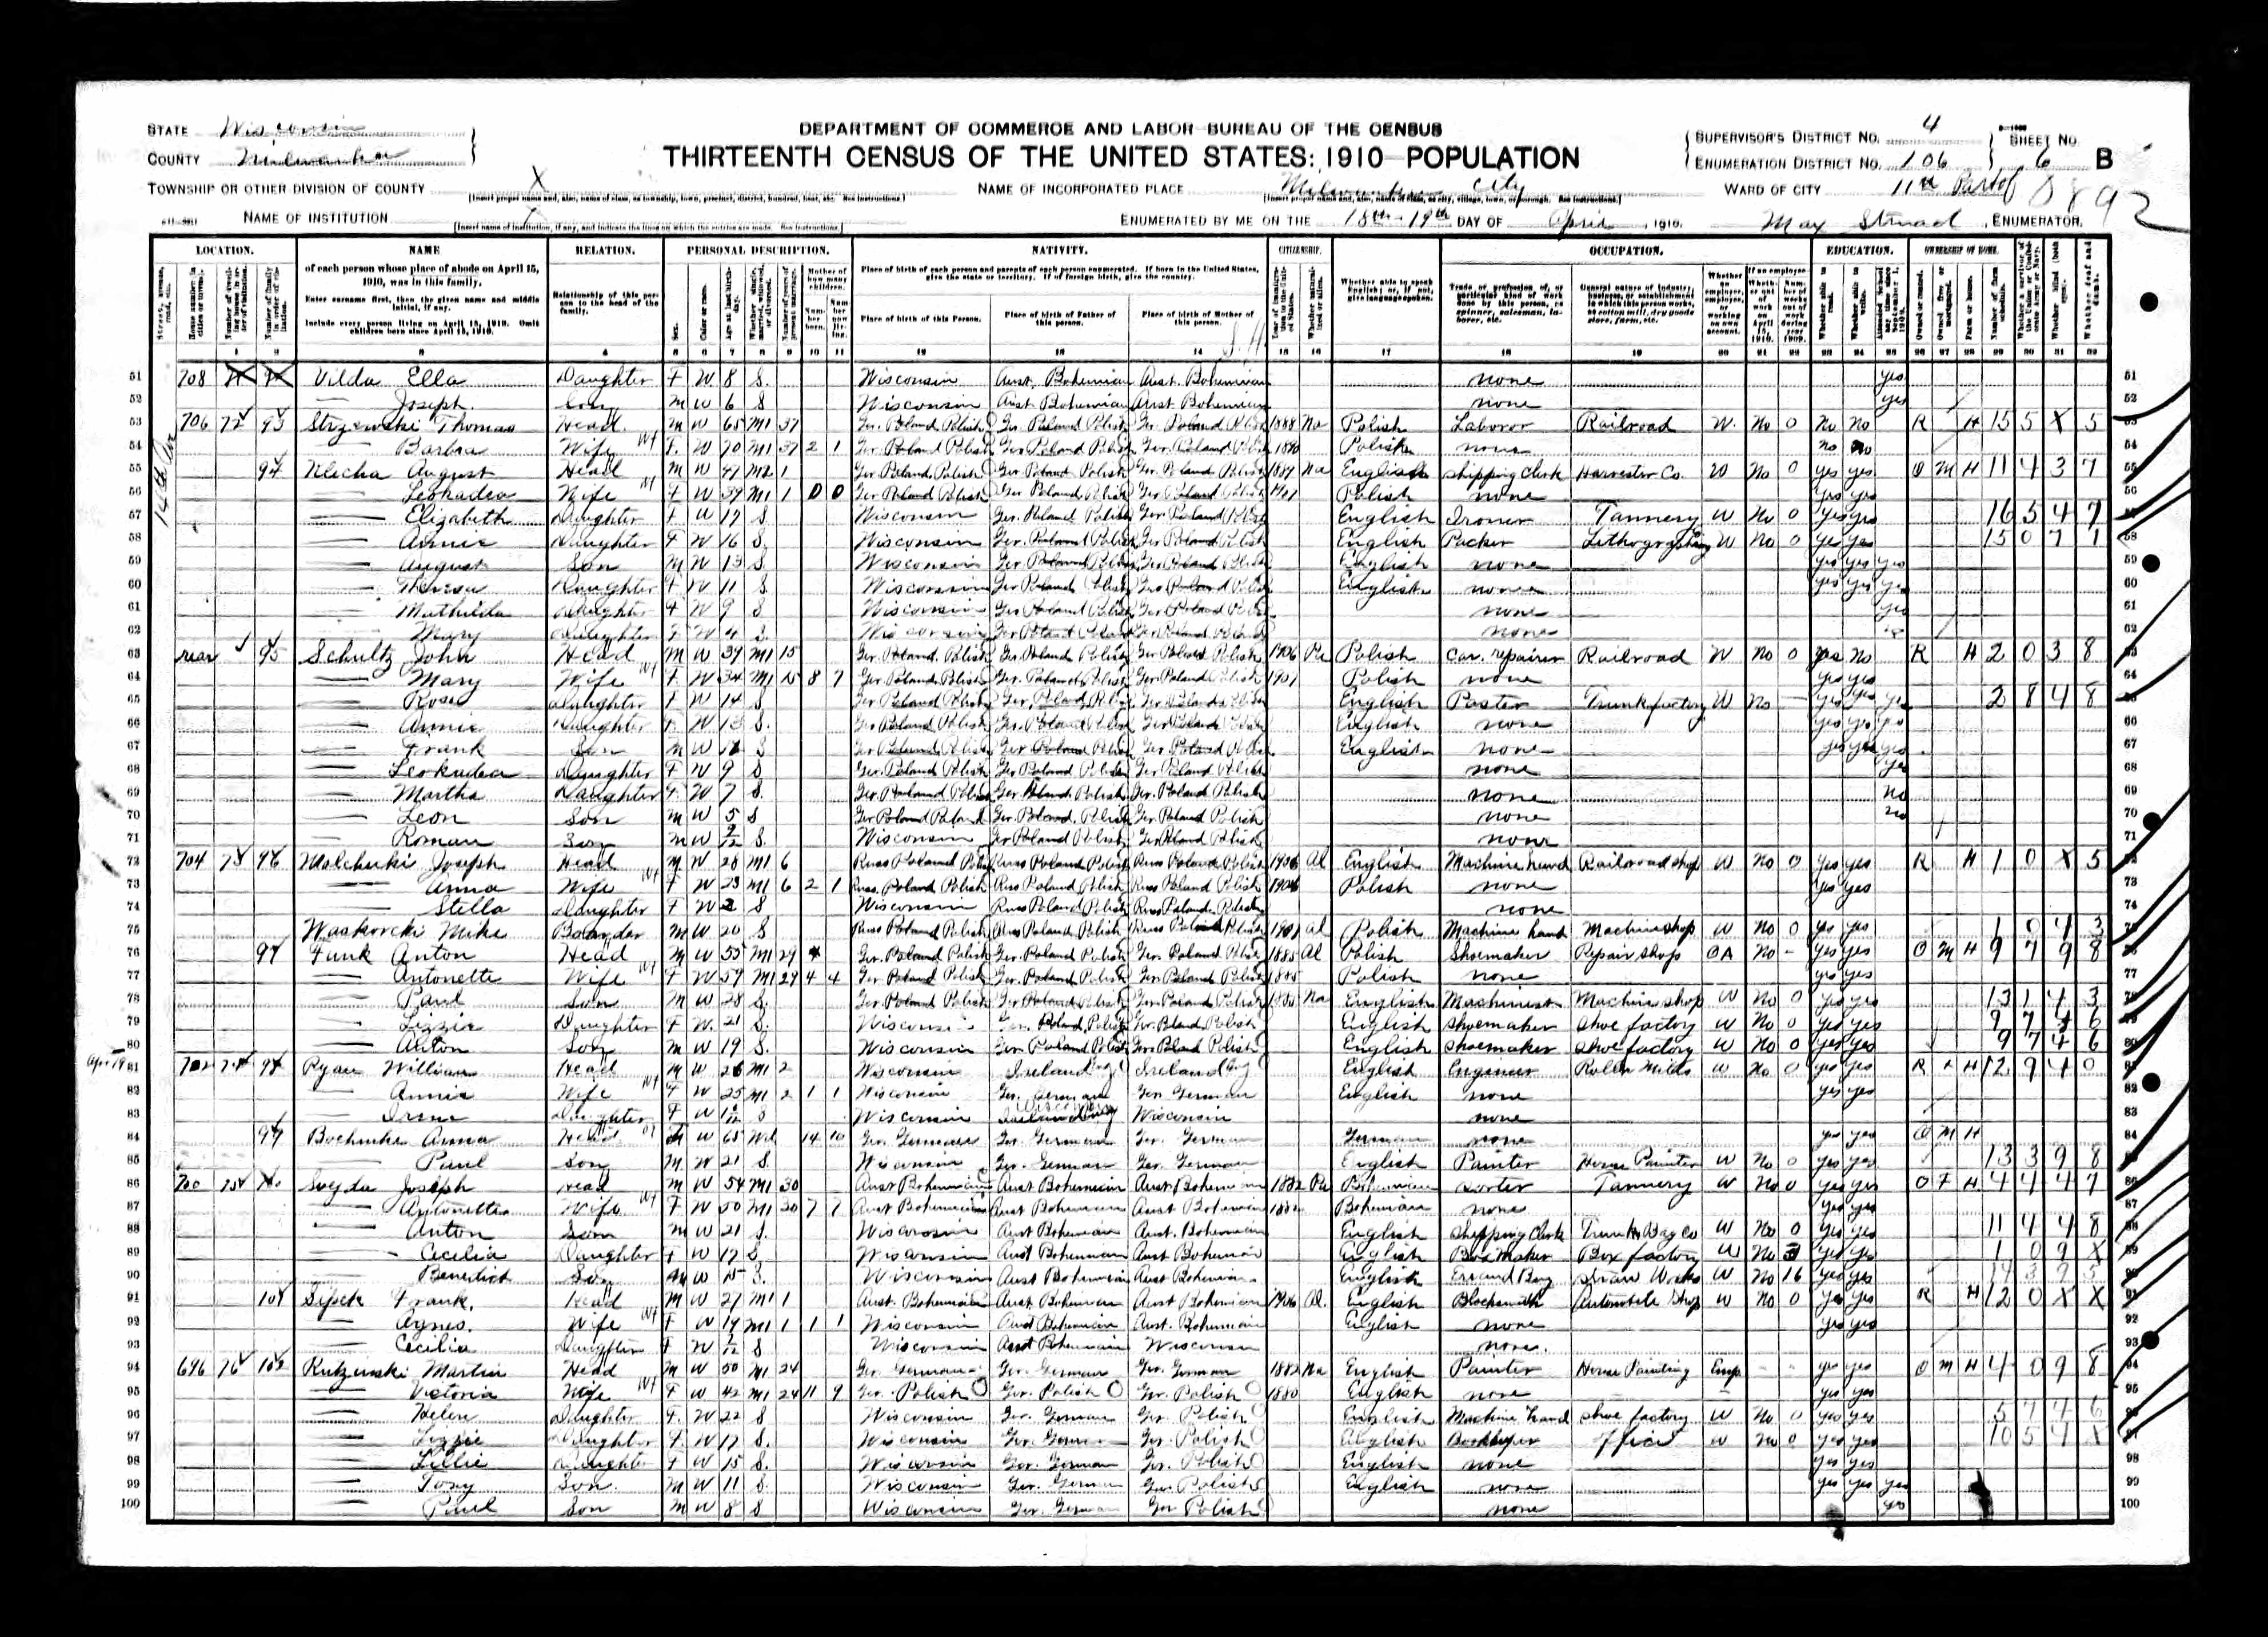 STATE Wisconsin
COUNTY Milwaukee
TOWNSHIP OR OTHER DIVISION OF COUNTY X
NAME OF INSTITUTION X
DEPARTMENT OF COMMERCE AND LABOR—BUREAU OF THE CENSUS
THIRTEENTH CENSUS OF THE UNITED STATES: 1910—POPULATION
NAME OF INCORPORATED PLACE Milwaukee City
ENUMERATED BY ME ON THE 18th-19th DAY OF April, 1910. May Strnad, ENUMERATOR.
SUPERVISOR'S DISTRICT NO. 4
ENUMERATION DISTRICT NO. 106
SHEET NO. 6 B
WARD OF CITY 11th Part of
0892
LOCATION. NAME RELATION. PERSONAL DESCRIPTION. NATIVITY. CITIZENSHIP. OCCUPATION. EDUCATION. OWNERSHIP OF HOME.
of each person whose place of abode on April 15, 1910, was in this family.
Enter surname first, then the given name and middle initial, if any.
Include every person living on April 15, 1910. Omit children born since April 15, 1910.
Relationship of this person to the head of the family.
Place of birth of each person and parents of each person enumerated. If born in the United States, give the state or territory. If of foreign birth, give the country.
Place of birth of this Person. Place of birth of Father of this person. Place of birth of Mother of this person.
14th Av
51 708 Vilda Ella Daughter F W 8 S Wisconsin Aust. Bohemian Aust. Bohemian none yes
52 Joseph Son M W 6 S Wisconsin Aust. Bohemian Aust. Bohemian none yes
53 706 72 93 Strzewski Thomas Head M W 65 M1 37 Ger. Poland Polish Ger. Poland Polish Ger. Poland Polish 1888 Na Polish Laborer Railroad W No 0 No No R H 15 5 X 5
54 Barbra Wife F W 70 M1 37 2 1 Ger Poland Polish Ger Poland Polish Ger Poland Polish 1880 Polish none no no
55 94 August Head M W 47 M2 1 Ger Poland Polish Ger Poland Polish Ger Poland Polish Na English Shipping Clerk Harvester Co. W No 0 yes yes O M H 11 4 3 7
56 Leokadea Wife F W 39 M1 1 0 0 Ger Poland Polish Ger Poland Polish Ger Poland Polish Polish none yes yes
57 Elizabeth Daughter F W 17 S Wisconsin Ger. Poland Polish Ger. Poland Polish English Ironer Tannery W No 0 yes yes 16 5 4 7
58 Annie Daughter F W 16 S Wisconsin Ger. Poland Polish Ger Poland Polish English Packer Lithographing W No 0 yes yes 15 0 7 1
59 August Son M W 13 S Wisconsin Ger Poland Polish Ger Poland Polish English none yes yes yes
60 Theresa Daughter F W 11 S Wisconsin Ger Poland Polish Ger Poland Polish English none yes yes yes
61 Mathilda Daughter F W 9 S Wisconsin Ger Poland Polish Ger Poland Polish none yes
62 Mary Daughter F W 4 S Wisconsin Ger Poland Poland Ger Poland Poland none
63 rear 95 Schultz John Head M W 39 M1 15 Ger. Poland Polish Ger. Poland Polish Ger. Poland Polish 1906 Pa Polish Car repairer Railroad W No 0 yes No R H 2 0 3 8
64 Mary Wife F W 34 M1 15 8 7 Ger Poland Polish Ger. Poland Polish Ger Poland Polish 1901 Polish none yes yes
65 Rose Daughter F W 14 S Ger Poland Polish Ger. Poland Polish Ger Poland Polish English Paster Trunk factory W No — yes yes yes 2 8 4 8
66 Annie Daughter F W 13 S Ger Poland Polish Ger. Poland Polish Ger Poland Polish English none yes yes yes
67 Frank Son M W S Ger Poland Polish Ger Poland Polish Ger Poland Polish English none yes yes yes
68 Leokadea Daughter F W 9 S Ger. Poland Polish Ger Poland Polish Ger Poland Polish none yes
69 Martha Daughter F W 7 S Ger. Poland Polish Ger. Poland Polish Ger. Poland Polish none no
70 Leon Son M W 5 S Ger Poland Poland Ger. Poland Polish Ger. Poland Polish none no
71 Roman Son M W 9/12 S Wisconsin Ger Poland Polish Ger Poland Polish none
72 704 73 96 Malchuki Joseph Head M W 28 M1 6 Russ Poland Polish Russ Poland Polish Russ Poland Polish 1906 Al English Machine hand Railroad shop W No 0 yes yes R H 1 0 X 5
73 Anna Wife F W 23 M1 6 2 1 Russ. Poland Polish Russ Poland Polish Russ Poland Polish Polish none yes yes
74 Stella Daughter F W 2 S Wisconsin Russ Poland Polish Russ Poland Polish none
75 Waskorcki Mike Boarder M W 20 S Russ Poland Polish Russ Poland Polish Russ Poland Polish Al Polish Machine hand Machine shop W No 0 yes yes 1 0 4 3
76 97 Funk Anton Head M W 55 M1 29 Ger. Poland Polish Ger. Poland Polish Ger. Poland Polish 1885 Al Polish Shoemaker Repair shop OA No - yes yes O M H 9 7 9 8
77 Antonette Wife F W 59 M1 29 4 4 Ger Poland Polish Ger Poland Polish Ger. Poland Polish 1885 Polish none yes yes
78 Paul Son M W 28 S Ger Poland Polish Ger Poland Polish Ger Poland Polish 1885 Na English Machinist Machine shop W No 0 yes yes 13 1 4 3
79 Lizzie Daughter F W 21 S Wisconsin Ger. Poland Polish Ger. Poland Polish English Shoemaker Shoe factory W No 0 yes yes 9 7 4 6
80 Anton Son M W 19 S Wisconsin Ger Poland Polish Ger Poland Polish English Shoemaker Shoe factory W No 0 yes yes 9 7 4 6
Apr 19 81 702 74 98 Ryan William Head M W 26 M1 2 Wisconsin Ireland Eng Ireland Eng English Engineer Rolling Mills W No 0 yes yes R H 12 9 4 0
82 Annie Wife F W 25 M1 2 1 1 Wisconsin Ger. German Ger German English none yes yes
83 Irene Daughter F W S Wisconsin Wisconsin Wisconsin none
84 99 Boehmke Anna Head F W 65 Wd 14 10 Ger. German Ger. German Ger. German German none yes yes O M H
85 Paul Son M W 21 S Wisconsin Ger. German Ger. German English Painter House Painter W No 0 yes yes 13 3 9 8
86 700 75 100 Svejda Joseph Head M W 54 M1 30 Aust Bohemian Aust Bohemian Aust Bohemian 1882 Pa Bohemian Sorter Tannery W No 0 yes yes O F H 4 4 4 7
87 Antonette Wife F W 50 M1 30 7 7 Aust Bohemian Aust Bohemian Aust Bohemian 1882 Bohemian none yes yes
88 Anton Son M W 21 S Wisconsin Aust Bohemian Aust. Bohemian English Shipping Clerk Trunk & Bag Co W No 0 yes yes 11 4 4 8
89 Cecilia Daughter F W 17 S Wisconsin Aust Bohemian Aust Bohemian English Box maker Box factory W No 3 yes yes 1 0 9 X
90 Benedict Son M W 15 S Wisconsin Aust Bohemian Aust Bohemian English Errand Boy Straw Works W No 16 yes yes
91 101 Sipek Frank Head M W 27 M1 1 Aust. Bohemian Aust. Bohemian Aust Bohemian 1906 Al. English Blacksmith Automobile Shop W No 0 yes yes R H 12 0 X X
92 Agnes. Wife F W 19 M1 1 1 1 Wisconsin Aust Bohemian Aust. Bohemian English none yes yes
93 Cecilia Daughter F W S Wisconsin Aust Bohemian Wisconsin none.
94 696 76 102 Rutzinski Martin Head M W 50 M1 24 Ger. German Ger. German Ger. German 1882 Na English Painter House Painting Emp. - - yes yes O M H 4 0 9 8
95 Victoria Wife F W 42 M1 24 11 9 Ger. Polish Ger. Polish Ger. Polish 1880 English none yes yes
96 Helen Daughter F. W 22 S Wisconsin Ger. German Ger. Polish English Machine hand Shoe factory W No 0 yes yes 5 7 4 6
97 Lizzie Daughter F. W 17 S. Wisconsin Ger. German Ger. Polish English Bookkeeper Office W No 0 yes yes 10 5 4 X
98 Lillie Daughter F W 15 S. Wisconsin Ger. German Ger. Polish English none yes yes
99 Tony Son. M W 11 S. Wisconsin Ger. German Ger. Polish English none yes yes yes
100 Paul Son M W 8 S Wisconsin Ger. German Ger Polish none yes